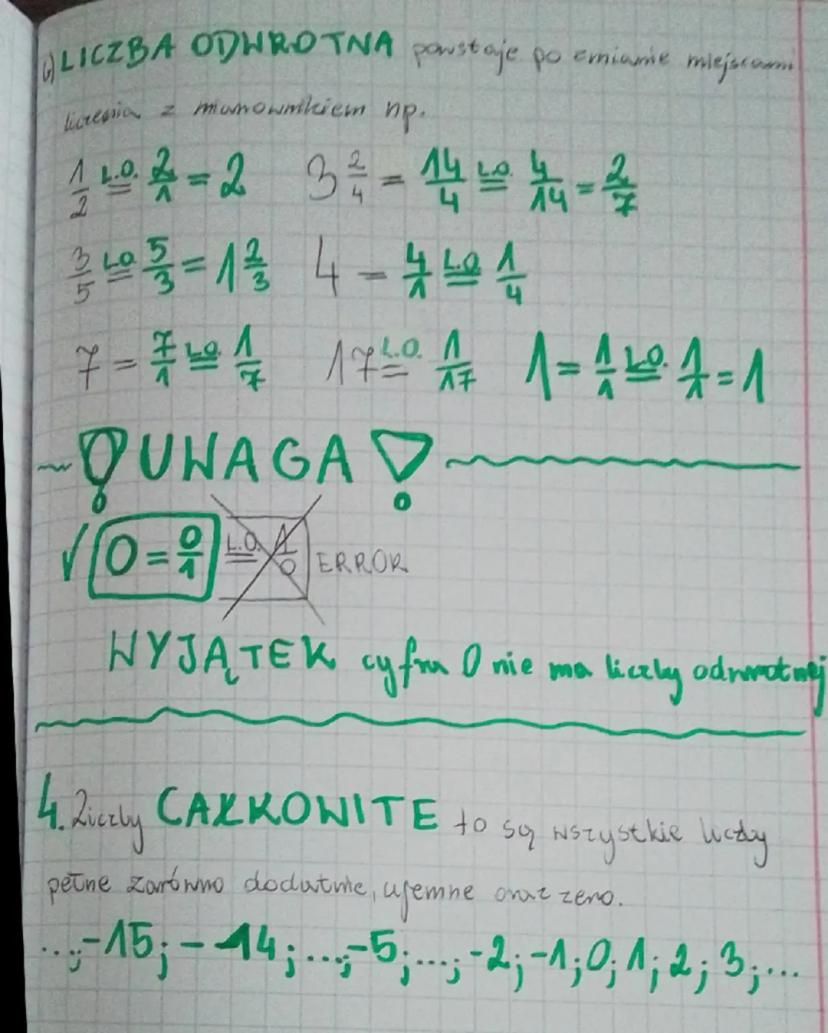 c) LICZBA ODWROTNA powstaje po zmianie miejscami
licznia z mianownikiem np.
1/2 L.O.= 2/1 = 2    3 2/4 = 14/4 L.O.= 4/14 = 2/7
3/5 L.O.= 5/3 = 1 2/3    4 = 4/1 L.O.= 1/4
7 = 7/1 L.O.= 1/7    17 L.O.= 1/17    1 = 1/1 L.O.= 1/1 = 1
! UWAGA !
√ 0 = 0/1 L.O.= 1/0 ERROR
WYJĄTEK cyfra 0 nie ma liczby odwrotnej
4. Liczby CAŁKOWITE to są wszystkie liczby
pełne zarówno dodatnie, ujemne oraz zero.
...; -15; -14; ...; -5; ...; -2; -1; 0; 1; 2; 3; ...